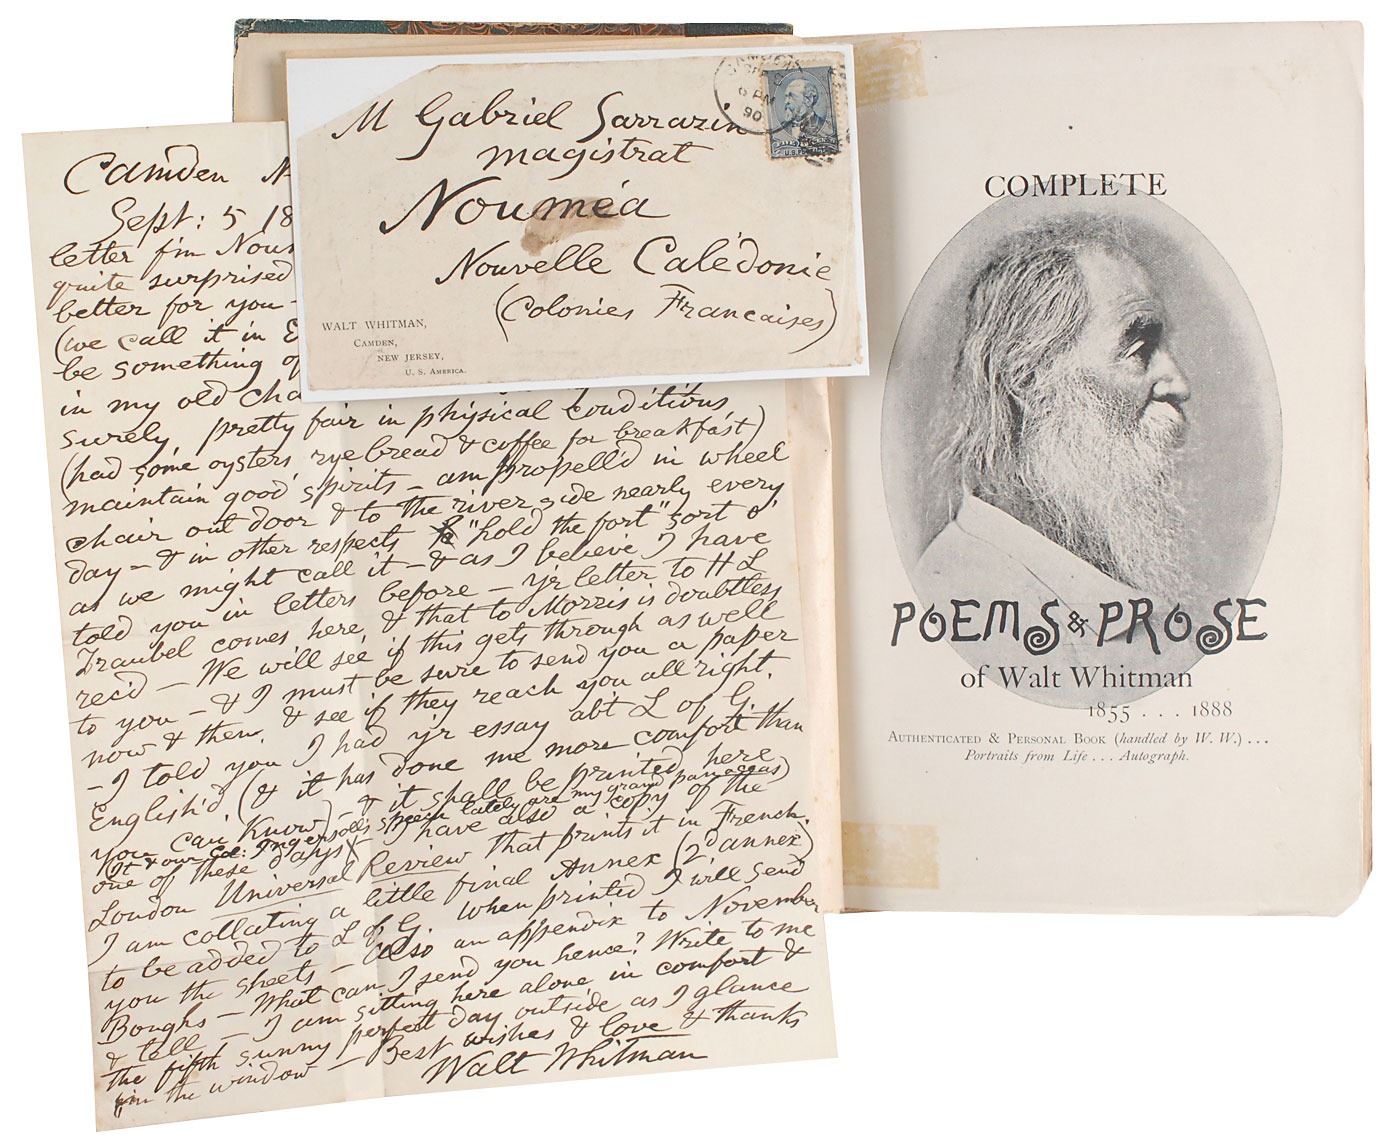 Camden N
Sept: 5 18
letter f'm Nou
quite surprised
better for you –
(we call it in E
be something of
in my old cha
surely pretty fair in physical conditions
(had some oysters, rye bread & coffee for breakfast)
maintain good spirits – am propell'd in wheel
chair out door & to the river side nearly every
day – & in other respects "hold the fort" sort o'
as we might call it – & as I believe I have
told you in letters before – y'r letter to H L
Traubel comes here, & that to Morris is doubtless
rec'd – We will see if this gets through as well
to you – & I must be sure to send you a paper
now & then, & see if they reach you all right.
– I told you I had y'r essay ab't L of G.
English'd (& it has done me more comfort than
you can know) – & it shall be printed here
(it & our Col: Ingersoll's speech lately are my grand panaceas)
one of these days & I have also a copy of the
London Universal Review that prints it in French.
I am collating a little final Annex (2d annex)
to be added to L of G. When printed I will send
you the sheets – also an appendix to November
Boughs – What can I send you hence? Write to me
& tell – I am sitting here alone in comfort &
the fifth sunny perfect day outside as I glance
in the window – Best wishes & love & thanks
Walt Whitman
M Gabriel Sarrazin
magistrat
Nouméa
Nouvelle Calédonie
(Colonies Francaises)
WALT WHITMAN,
CAMDEN,
NEW JERSEY,
U. S. AMERICA.
6 PM
90
COMPLETE
POEMS & PROSE
of Walt Whitman
1855 . . . 1888
AUTHENTICATED & PERSONAL BOOK (handled by W. W.) . . .
Portraits from Life . . . Autograph.